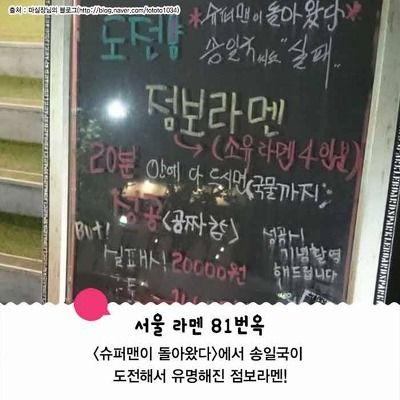 출처 : 마실장님의 블로그(http://blog.naver.com/tototo1034)
도전남
*슈퍼맨이 돌아왔다
송일국씨도 "실패"
점보라멘
→(소유라멘 4인분)
20분 안에 다 드시면(국물까지)
성공(공짜
But!
실패시 20000원
성공시
기념촬영
해드립니다
서울 라멘 81번옥
<슈퍼맨이 돌아왔다>에서 송일국이
도전해서 유명해진 점보라멘!